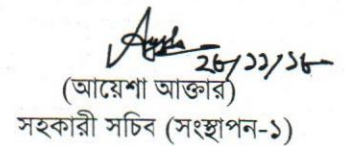 ২৮/১১/১৮
(আয়েশা আক্তার)
সহকারী সচিব (সংস্থাপন-১)